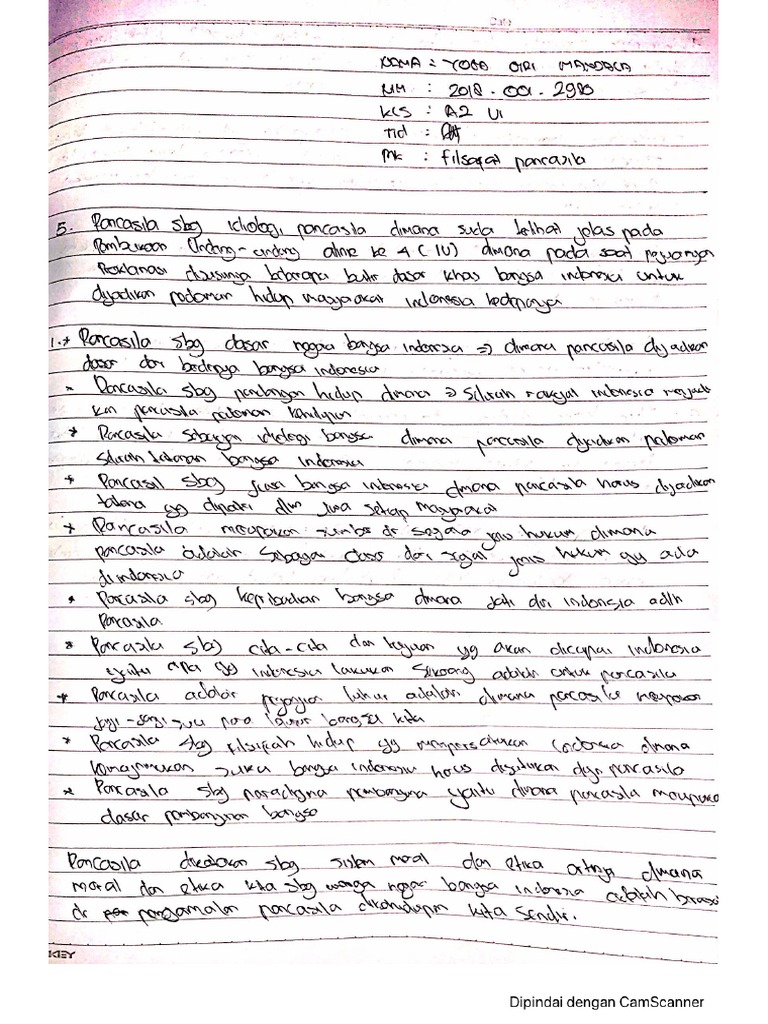 NAMA : YOGA GIRI
NIM : 2018.001.2980
KLS : A2 UI
Ttd :
MK : Filsafat pancasila
5. Pancasila sbg idiologi, pancasila dimana suda kelihat jelas pada
Pembukaan Undang-undang aline ke 4 (IV) dimana pada saat
Proklamasi disusunya beberapa butir dasar khas bangsa indonesia untuk
dijadikan pedoman hidup masyarakat indonesia kedepanya
1. * Pancasila sbg dasar negara bangsa indonesia => dimana pancasila dijadikan
dasar dari berdirinya bangsa indonesia
- Pancasila sbg pandangan hidup dimana => seluruh rakyat indonesia menjadi
kan pancasila pedoman kehidupan
* Pancasila sebagai idelogi bangsa dimana pancasila dijadikan pedoman
seluruh tatanan bangsa indonesia
* Pancasil sbg jiwa bangsa indonesia dimana pancasila harus dijadikan
yg dlm jiwa setiap masyarakat
* Pancasila merupakan sumber dr segala jenis hukum dimana
pancasila adalah sebagai dasar dari segala jenis hukum yg ada
di indonesia
* Pancasila sbg kepribadian bangsa dimana jati diri indonesia adlh
Pancasila
* Pancasila sbg cita-cita dan tujuan yg akan dicapai indonesia
yaitu apa yg indonesia lakukan sekarang adalah untuk pancasila
* Pancasila adalah perjanjian luhur adalah dimana pancasila merupakan
janji-janji para bangsa kita
* Pancasila sbg filsafah hidup yg mempersatukan indonesia dimana
kemajemukan suku bangsa indonesia harus disatukan dgn pancasila
* Pancasila sbg paradigma pembanguna yaitu dimana pancasila merupakan
dasar pembangunan bangsa
Pancasila dikatakan sbg sistem moral dan etika artinya dimana
moral dan etika kita sbg warga negar bangsa indonesia adalah
dr pengamalan pancasila dikehidupan kita sendiri.
KIEY
Dipindai dengan CamScanner